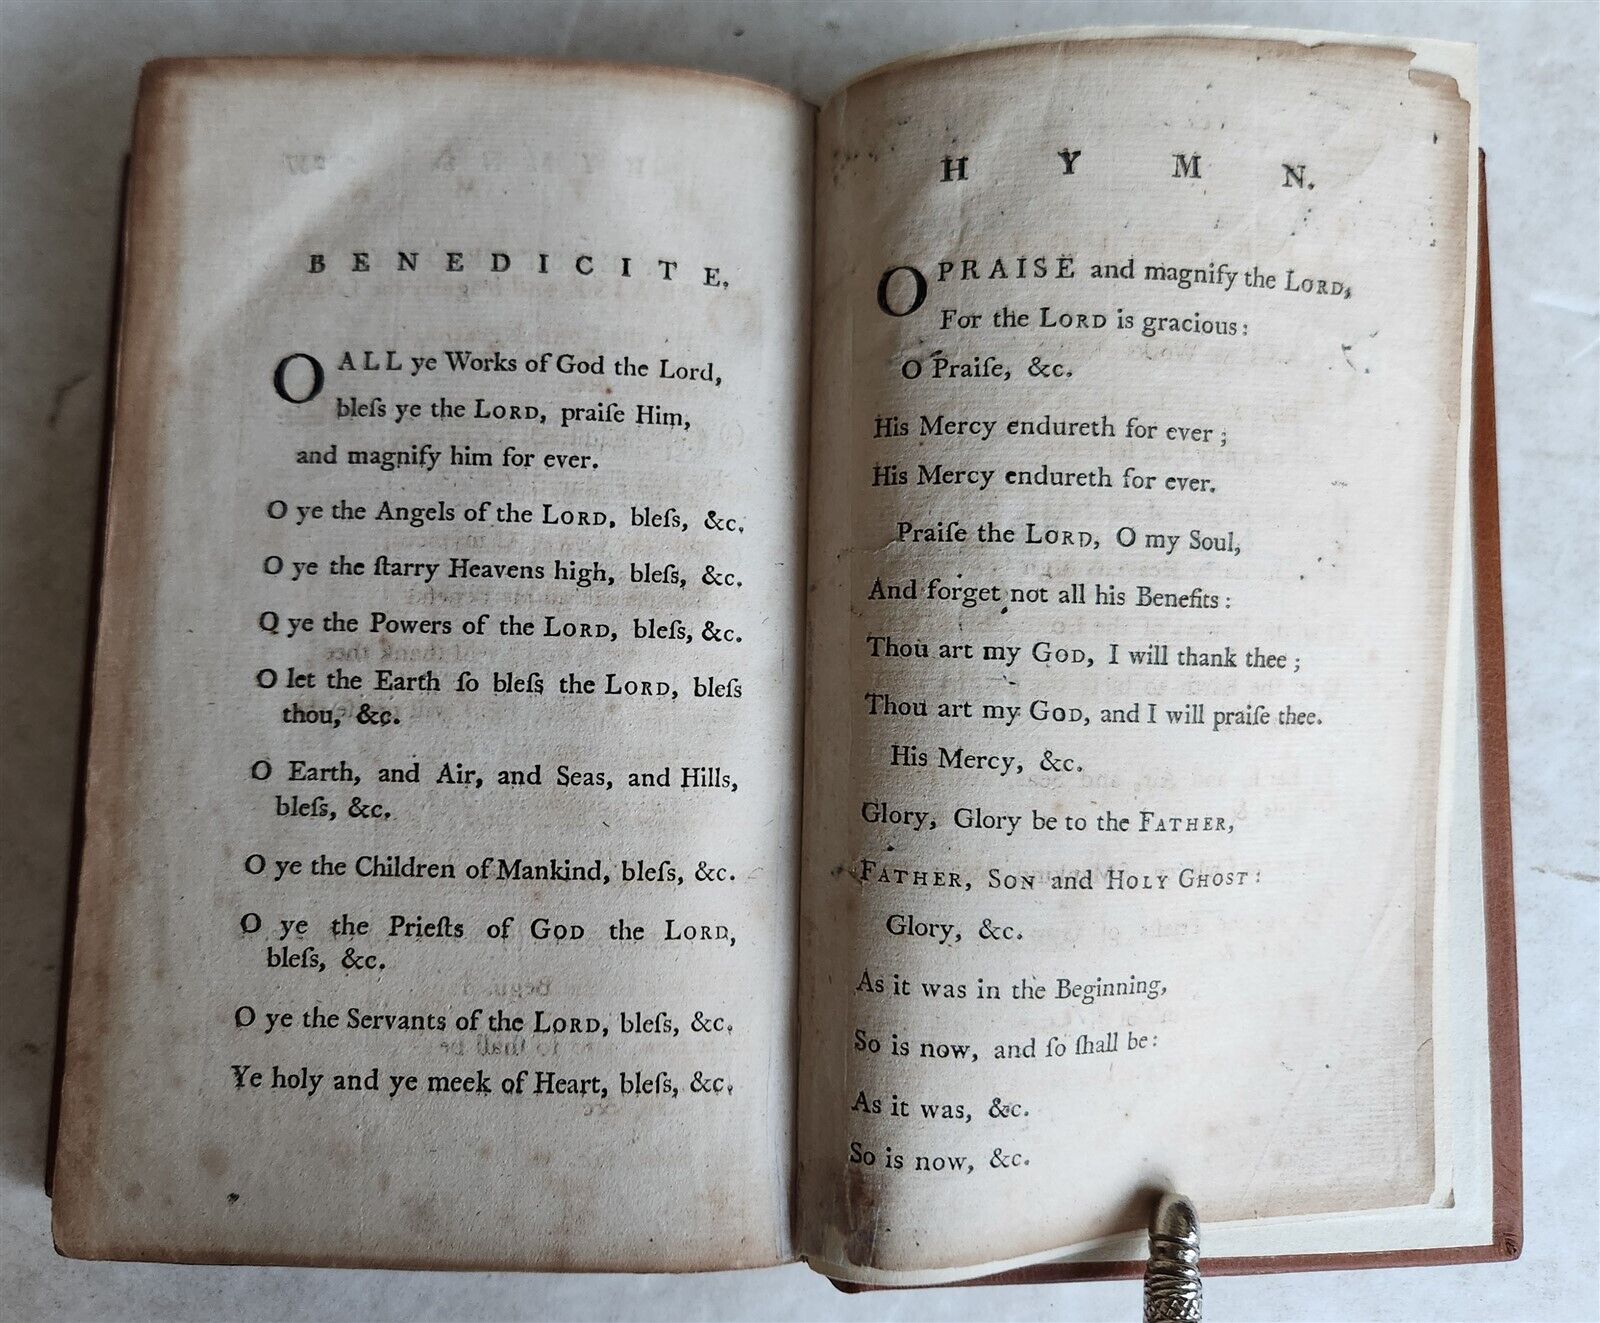 BENEDICITE.
O ALL ye Works of God the Lord,
bleſs ye the LORD, praiſe Him,
and magnify him for ever.
O ye the Angels of the LORD, bleſs, &c.
O ye the ſtarry Heavens high, bleſs, &c.
O ye the Powers of the LORD, bleſs, &c.
O let the Earth ſo bleſs the LORD, bleſs
thou, &c.
O Earth, and Air, and Seas, and Hills,
bleſs, &c.
O ye the Children of Mankind, bleſs, &c.
O ye the Prieſts of GOD the LORD,
bleſs, &c.
O ye the Servants of the LORD, bleſs, &c.
Ye holy and ye meek of Heart, bleſs, &c.
HYMN.
O PRAISE and magnify the LORD,
For the LORD is gracious:
O Praiſe, &c.
His Mercy endureth for ever;
His Mercy endureth for ever.
Praiſe the LORD, O my Soul,
And forget not all his Benefits:
Thou art my GOD, I will thank thee;
Thou art my GOD, and I will praiſe thee.
His Mercy, &c.
Glory, Glory be to the FATHER,
FATHER, SON and HOLY GHOST:
Glory, &c.
As it was in the Beginning,
So is now, and ſo ſhall be:
As it was, &c.
So is now, &c.